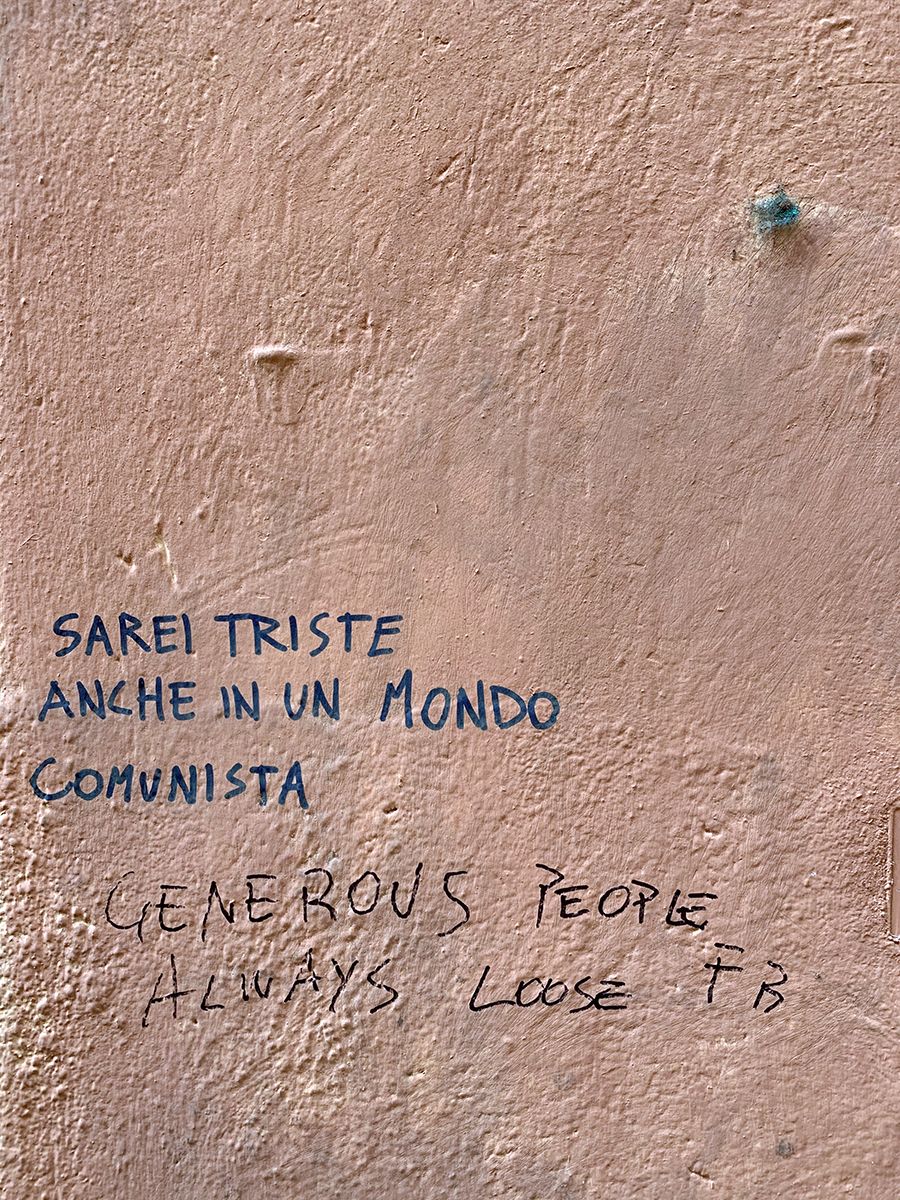 SAREI TRISTE
ANCHE IN UN MONDO
COMUNISTA
GENEROUS PEOPLE
ALWAYS LOOSE FB